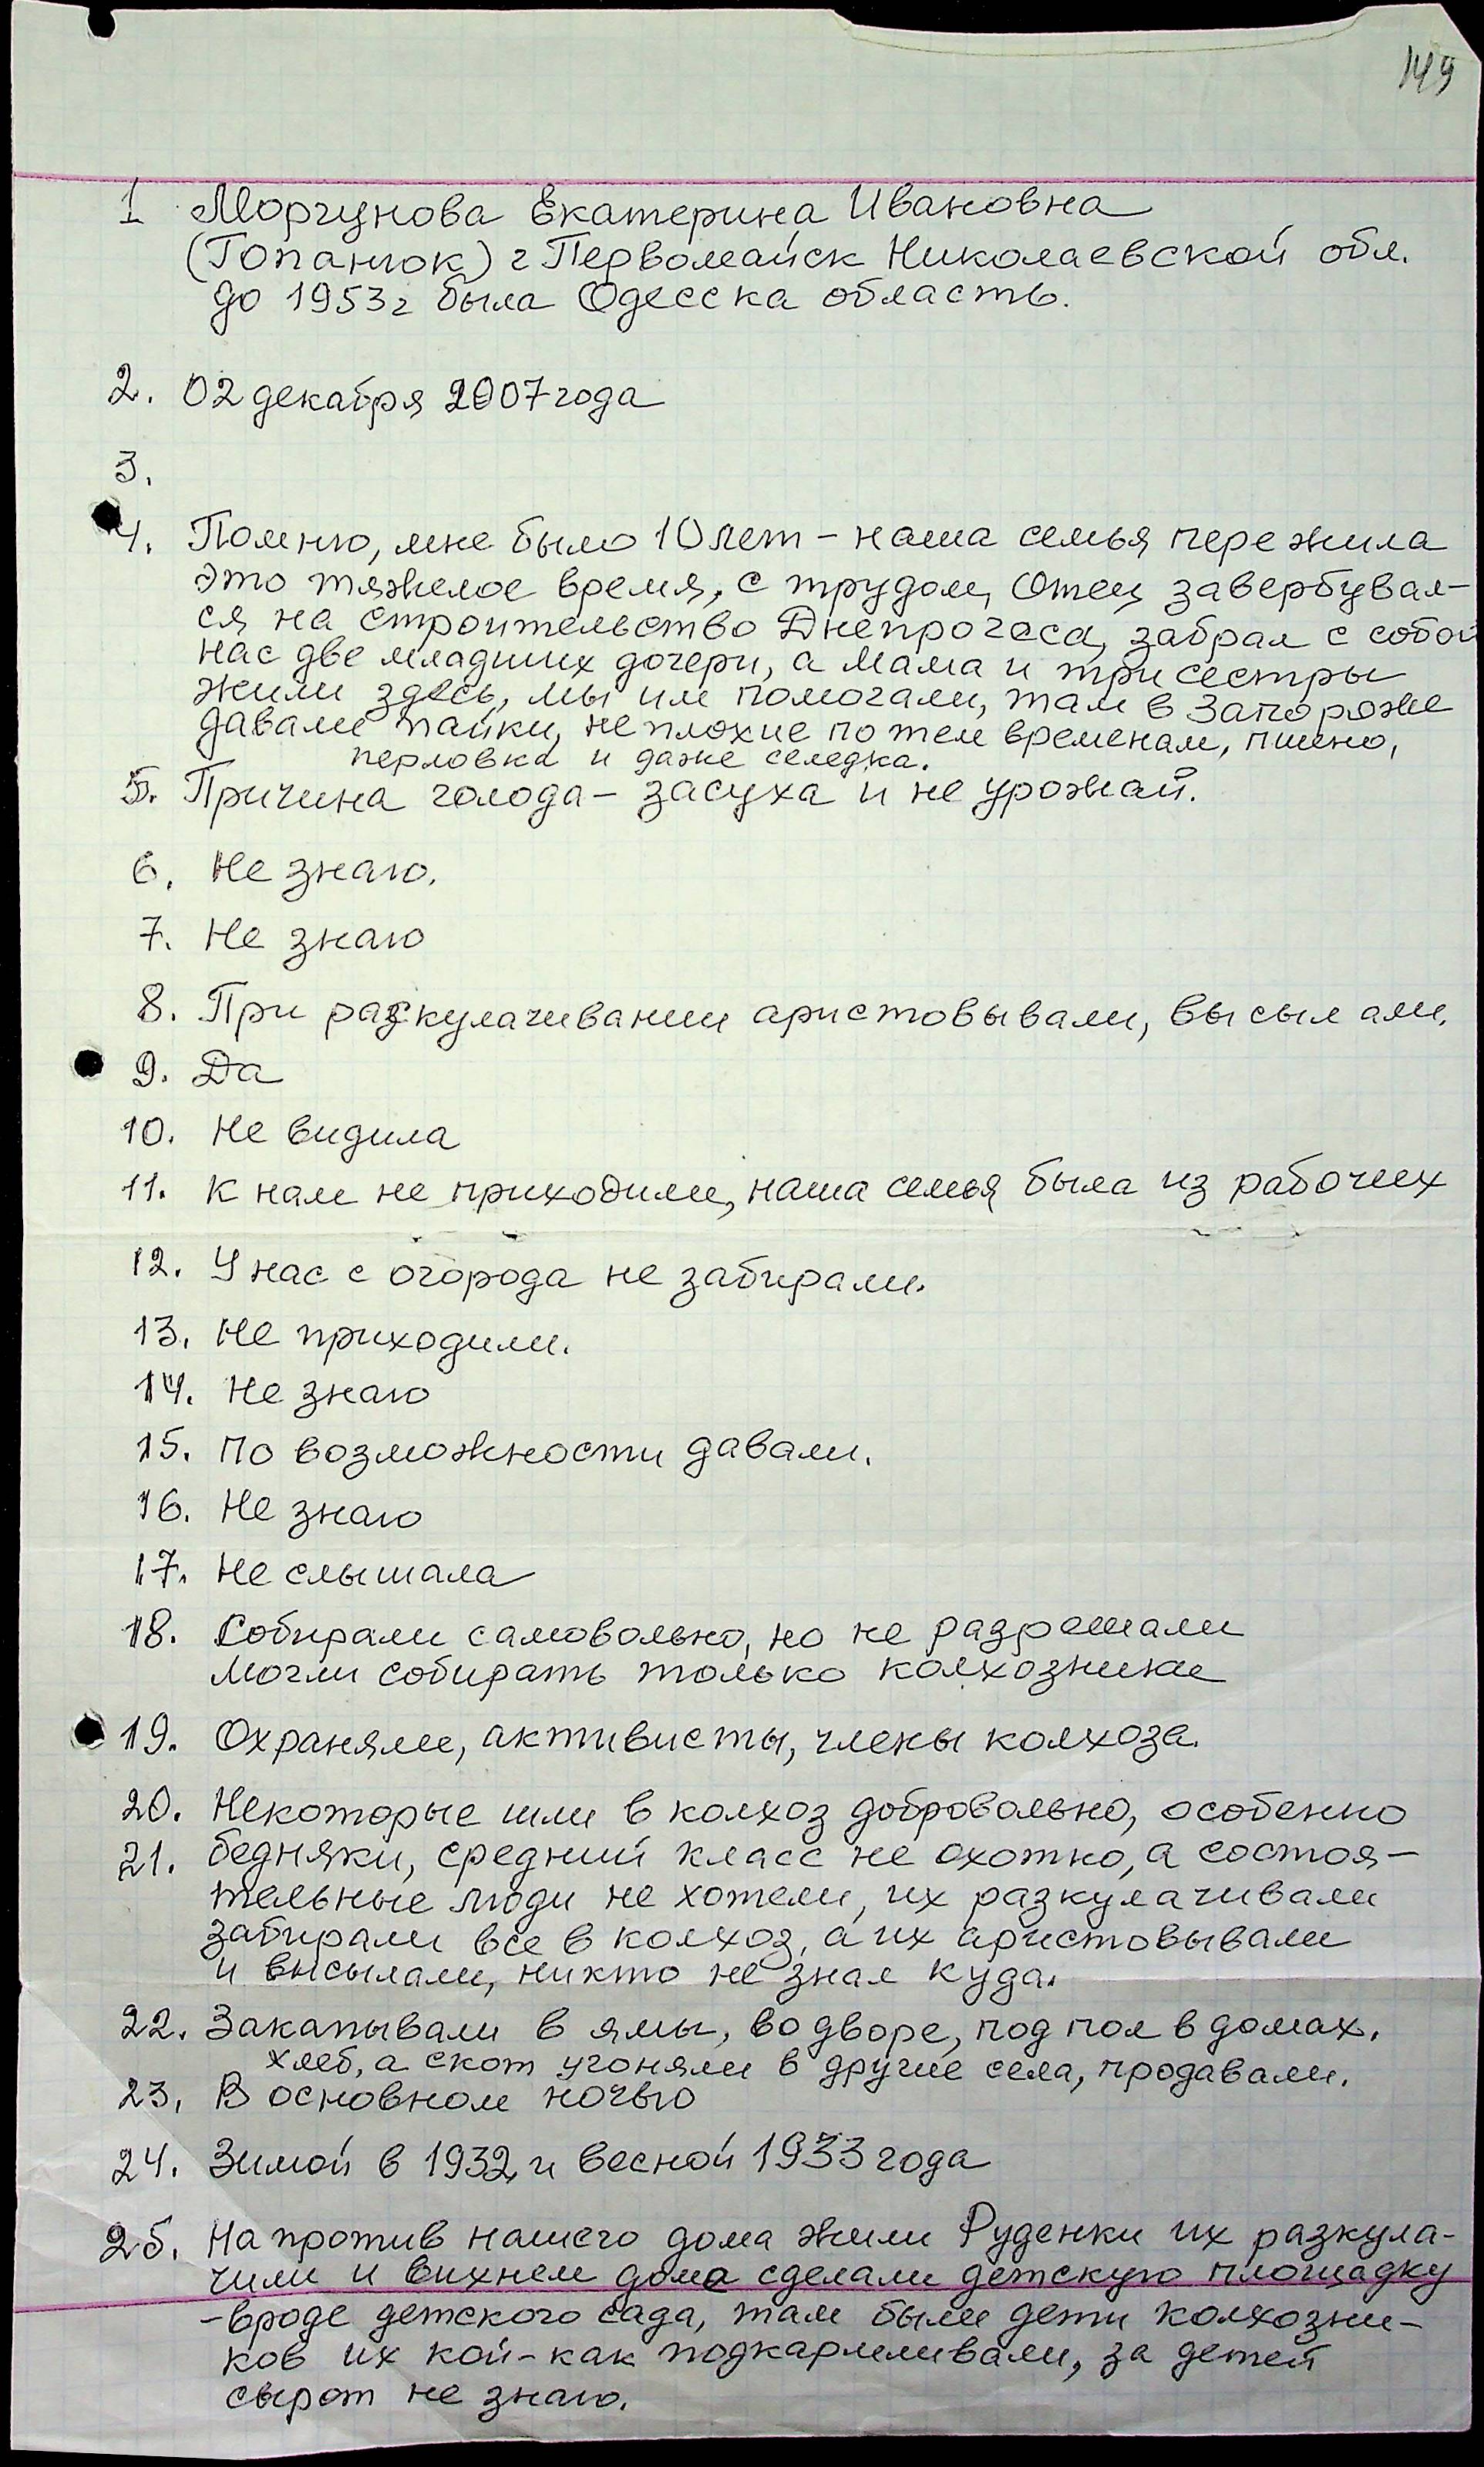 149
1 Моргунова Екатерина Ивановна
(Топанюк) г Первомайск Николаевской обл.
до 1953г была Одесска область.
2. 02 декабря 2007 года
3.
4. Помню, мне было 10 лет – наша семья пережила
это тяжелое время, с трудом, Отец завербувал-
ся на строительство Днепрогеса, забрал с собой
нас две младших дочери, а мама и три сестры
жили здесь, мы им помогали, там в Запороже
давали пайки, неплохие по тем временам, пшено,
перловка и даже селедка.
5. Причина голода – засуха и не урожай.
6. Не знаю.
7. Не знаю
8. При разкулачивании аристовывали, высылали.
9. Да
10. Не видила
11. К нам не приходили, наша семья была из рабочих
12. У нас с огорода не забирали.
13. Не приходили.
14. Не знаю
15. По возможности давали.
16. Не знаю
17. Не слышала
18. Собирали самовольно, но не разрешали
могли собирать только колхозники
19. Охраняли, активисты, члены колхоза.
20. Некоторые шли в колхоз добровольно, особенно
21. бедняки, средний класс не охотно, а состоя-
тельные люди не хотели, их разкулачивали
забирали все в колхоз, а их аристовывали
и высылали, никто не знал куда.
22. Закапывали в ямы, во дворе, под пол в домах.
хлеб, а скот угоняли в другие села, продавали.
23, В основном ночью
24. Зимой в 1932 и весной 1933 года
25. На против нашего дома жили Руденки их разкула-
чили и вихнем доме сделали детскую площадку
-вроде детского сада, там были дети колхозни-
ков их кой-как подкармливали, за детей
сырот не знаю.